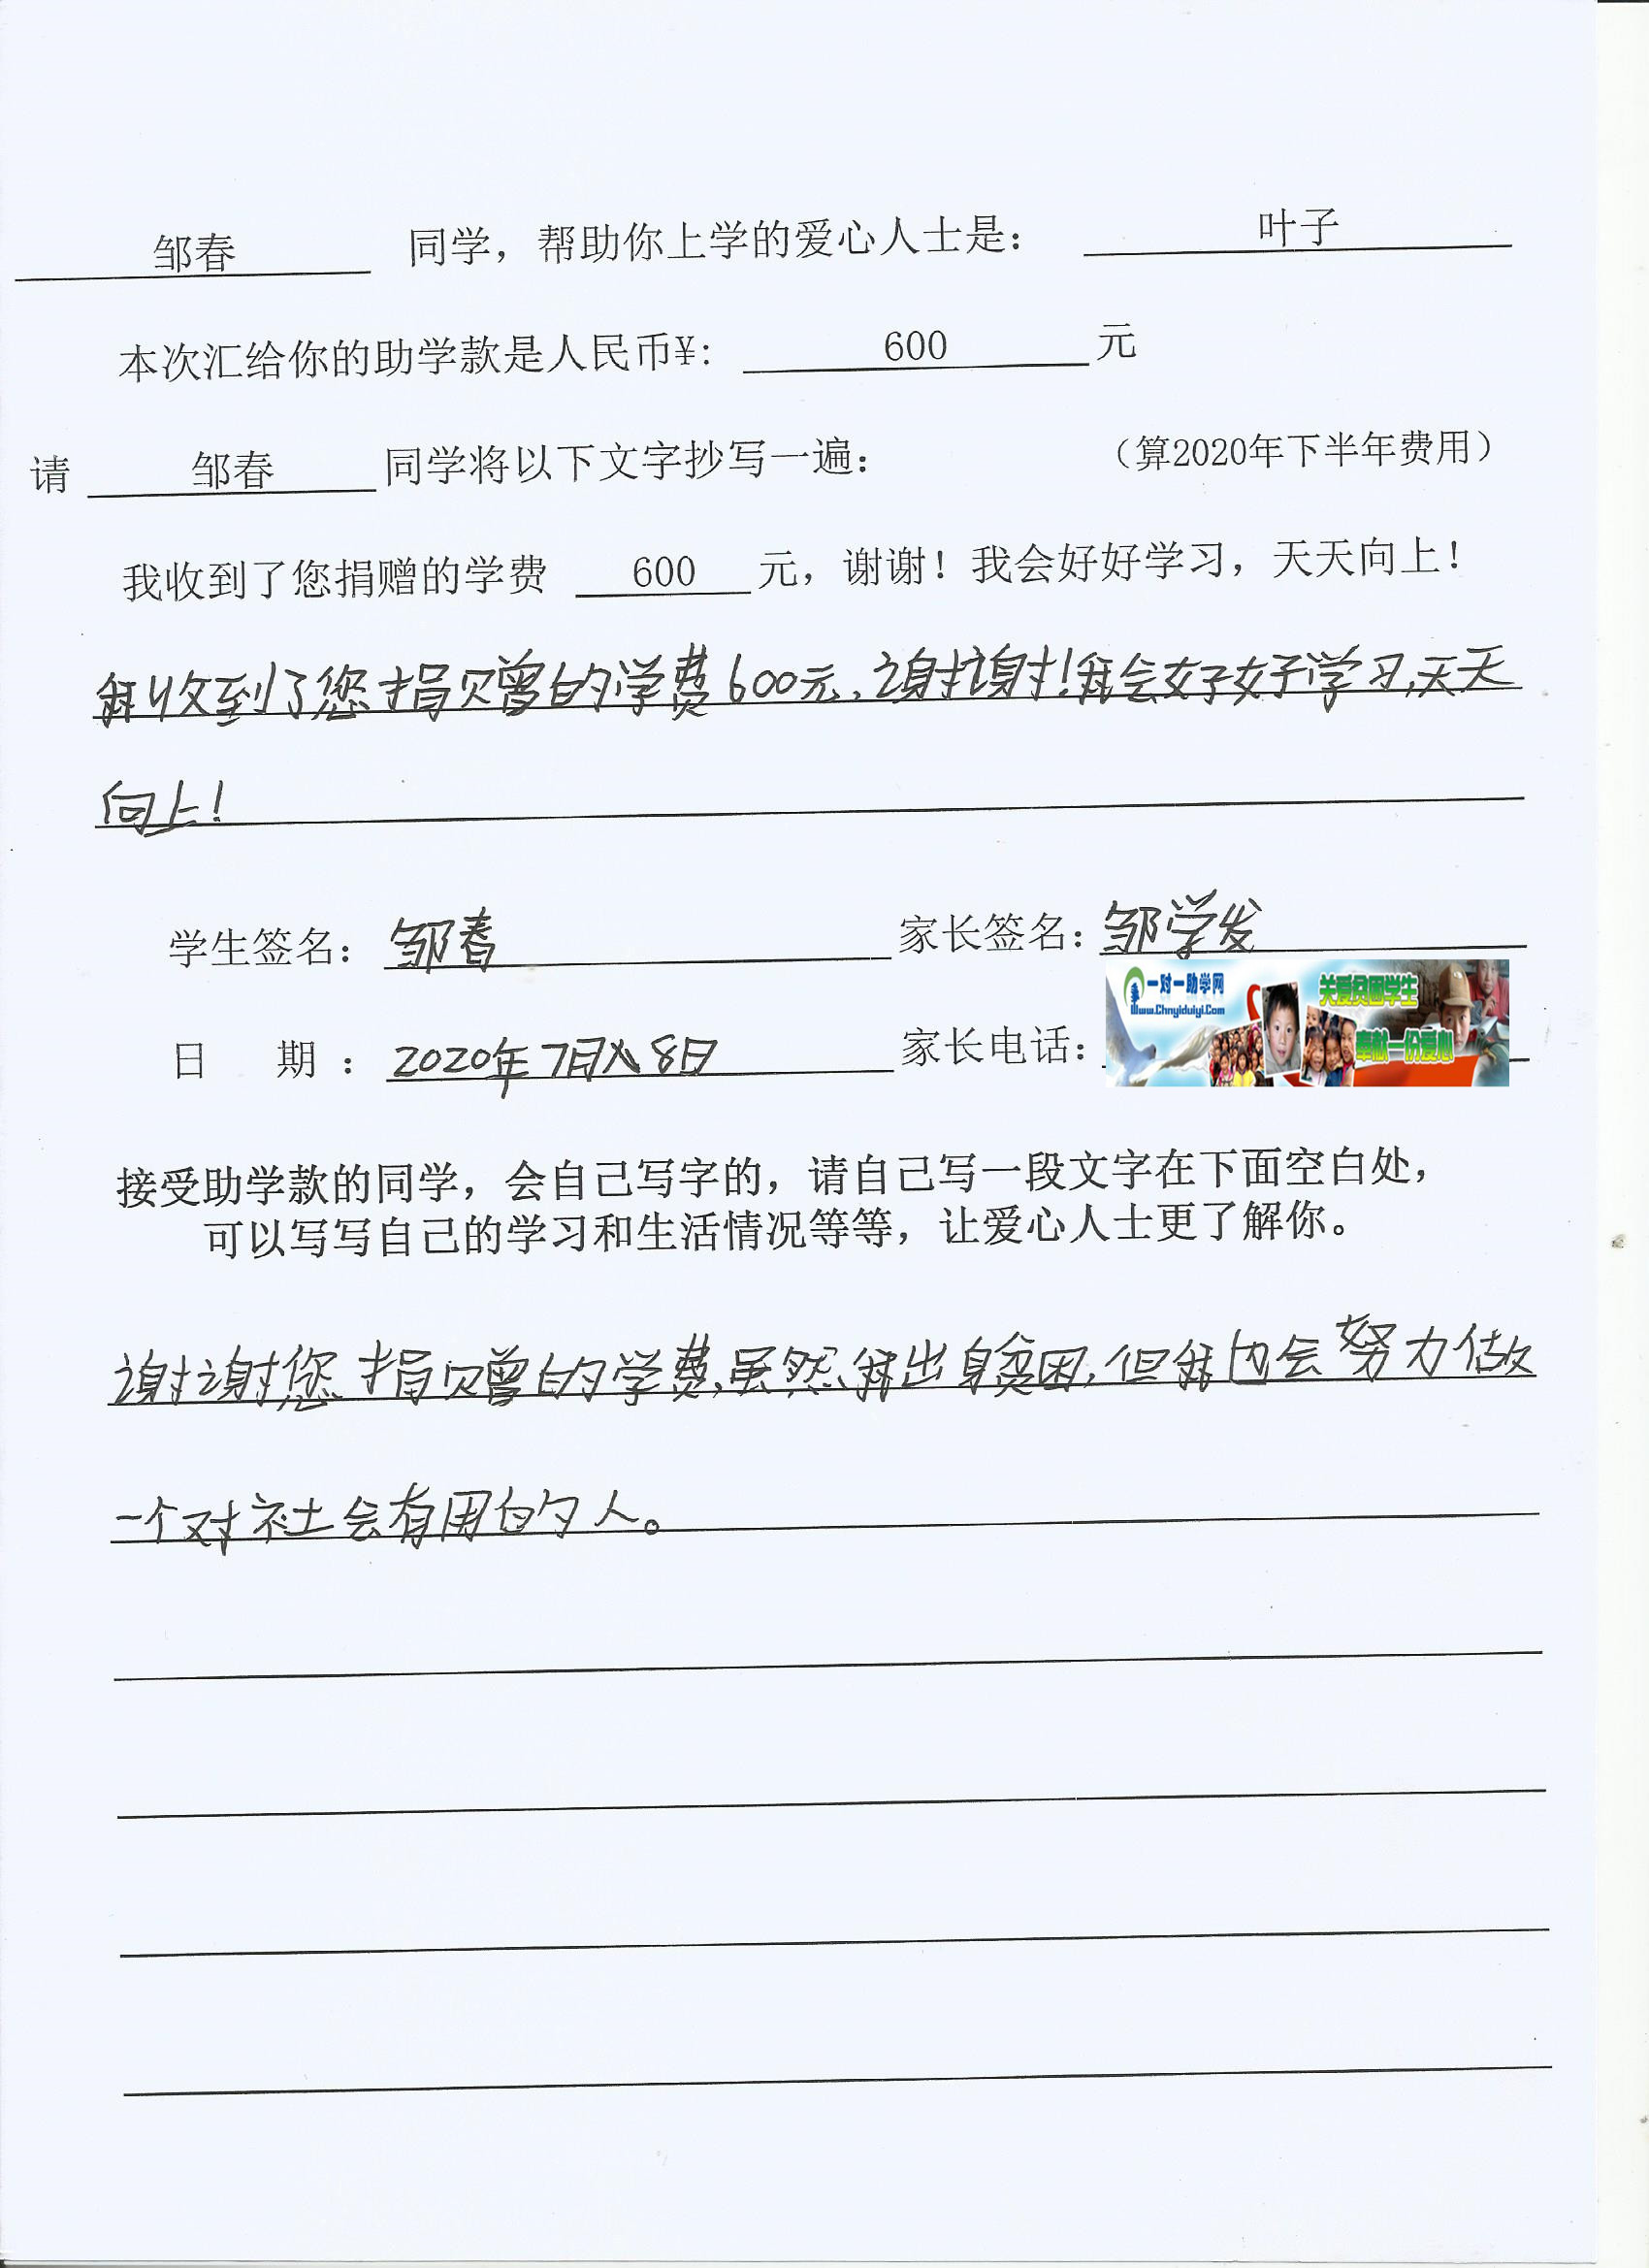 邹春 同学，帮助你上学的爱心人士是： 叶子
本次汇给你的助学款是人民币¥： 600 元
请 邹春 同学将以下文字抄写一遍： （算2020年下半年费用）
我收到了您捐赠的学费 600 元，谢谢！我会好好学习，天天向上！
我收到了您捐赠的学费600元，谢谢！我会好好学习，天天
向上！
学生签名： 邹春 家长签名： 邹学发
一对一助学网 关爱贫困学生
www.Chnyiduiyi.Com
奉献一份爱心
日 期 ： 2020年7月8日 家长电话：
接受助学款的同学，会自己写字的，请自己写一段文字在下面空白处，
可以写写自己的学习和生活情况等等，让爱心人士更了解你。
谢谢您捐赠的学费，虽然我出身贫困，但我也会努力做
一个对社会有用的人。